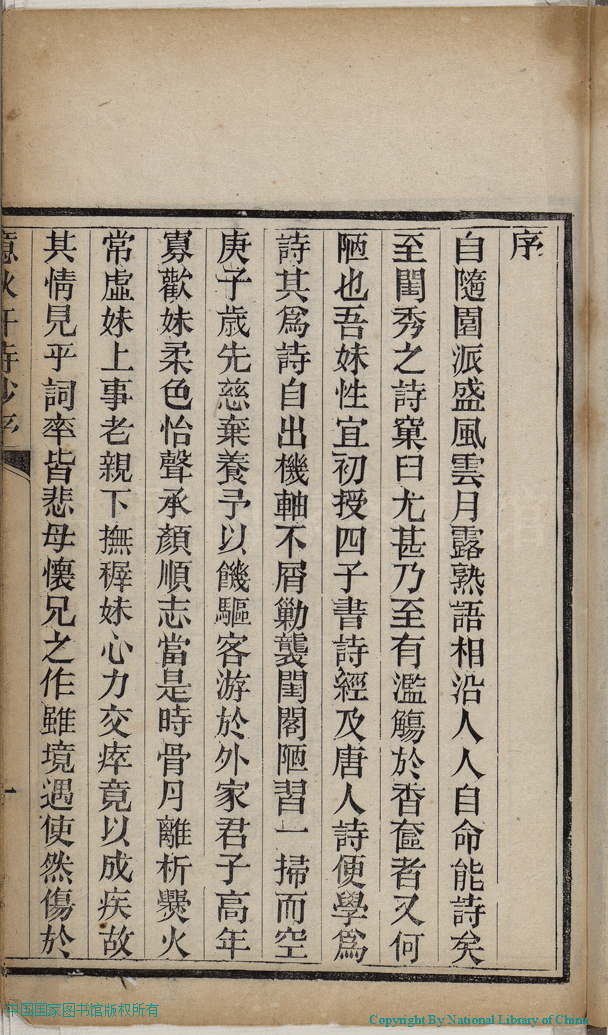 序
自隨園派盛風雲月露熟語相沿人人自命能詩矣
至閨秀之詩窠臼尤甚乃至有濫觴於香奩者又何
陋也吾妹性宜初授四子書詩經及唐人詩便學爲
詩其爲詩自出機軸不屑勦襲閨閣陋習一掃而空
庚子歲先慈棄養予以饑驅客游於外家君子高年
寡歡妹柔色怡聲承顏順志當是時骨月離析爨火
常虛妹上事老親下撫穉妹心力交瘁竟以成疾故
其情見乎詞率皆悲母懷兄之作雖境遇使然傷於
憶秋軒詩鈔序
一
中国国家图书馆版权所有
Copyright By National Library of China